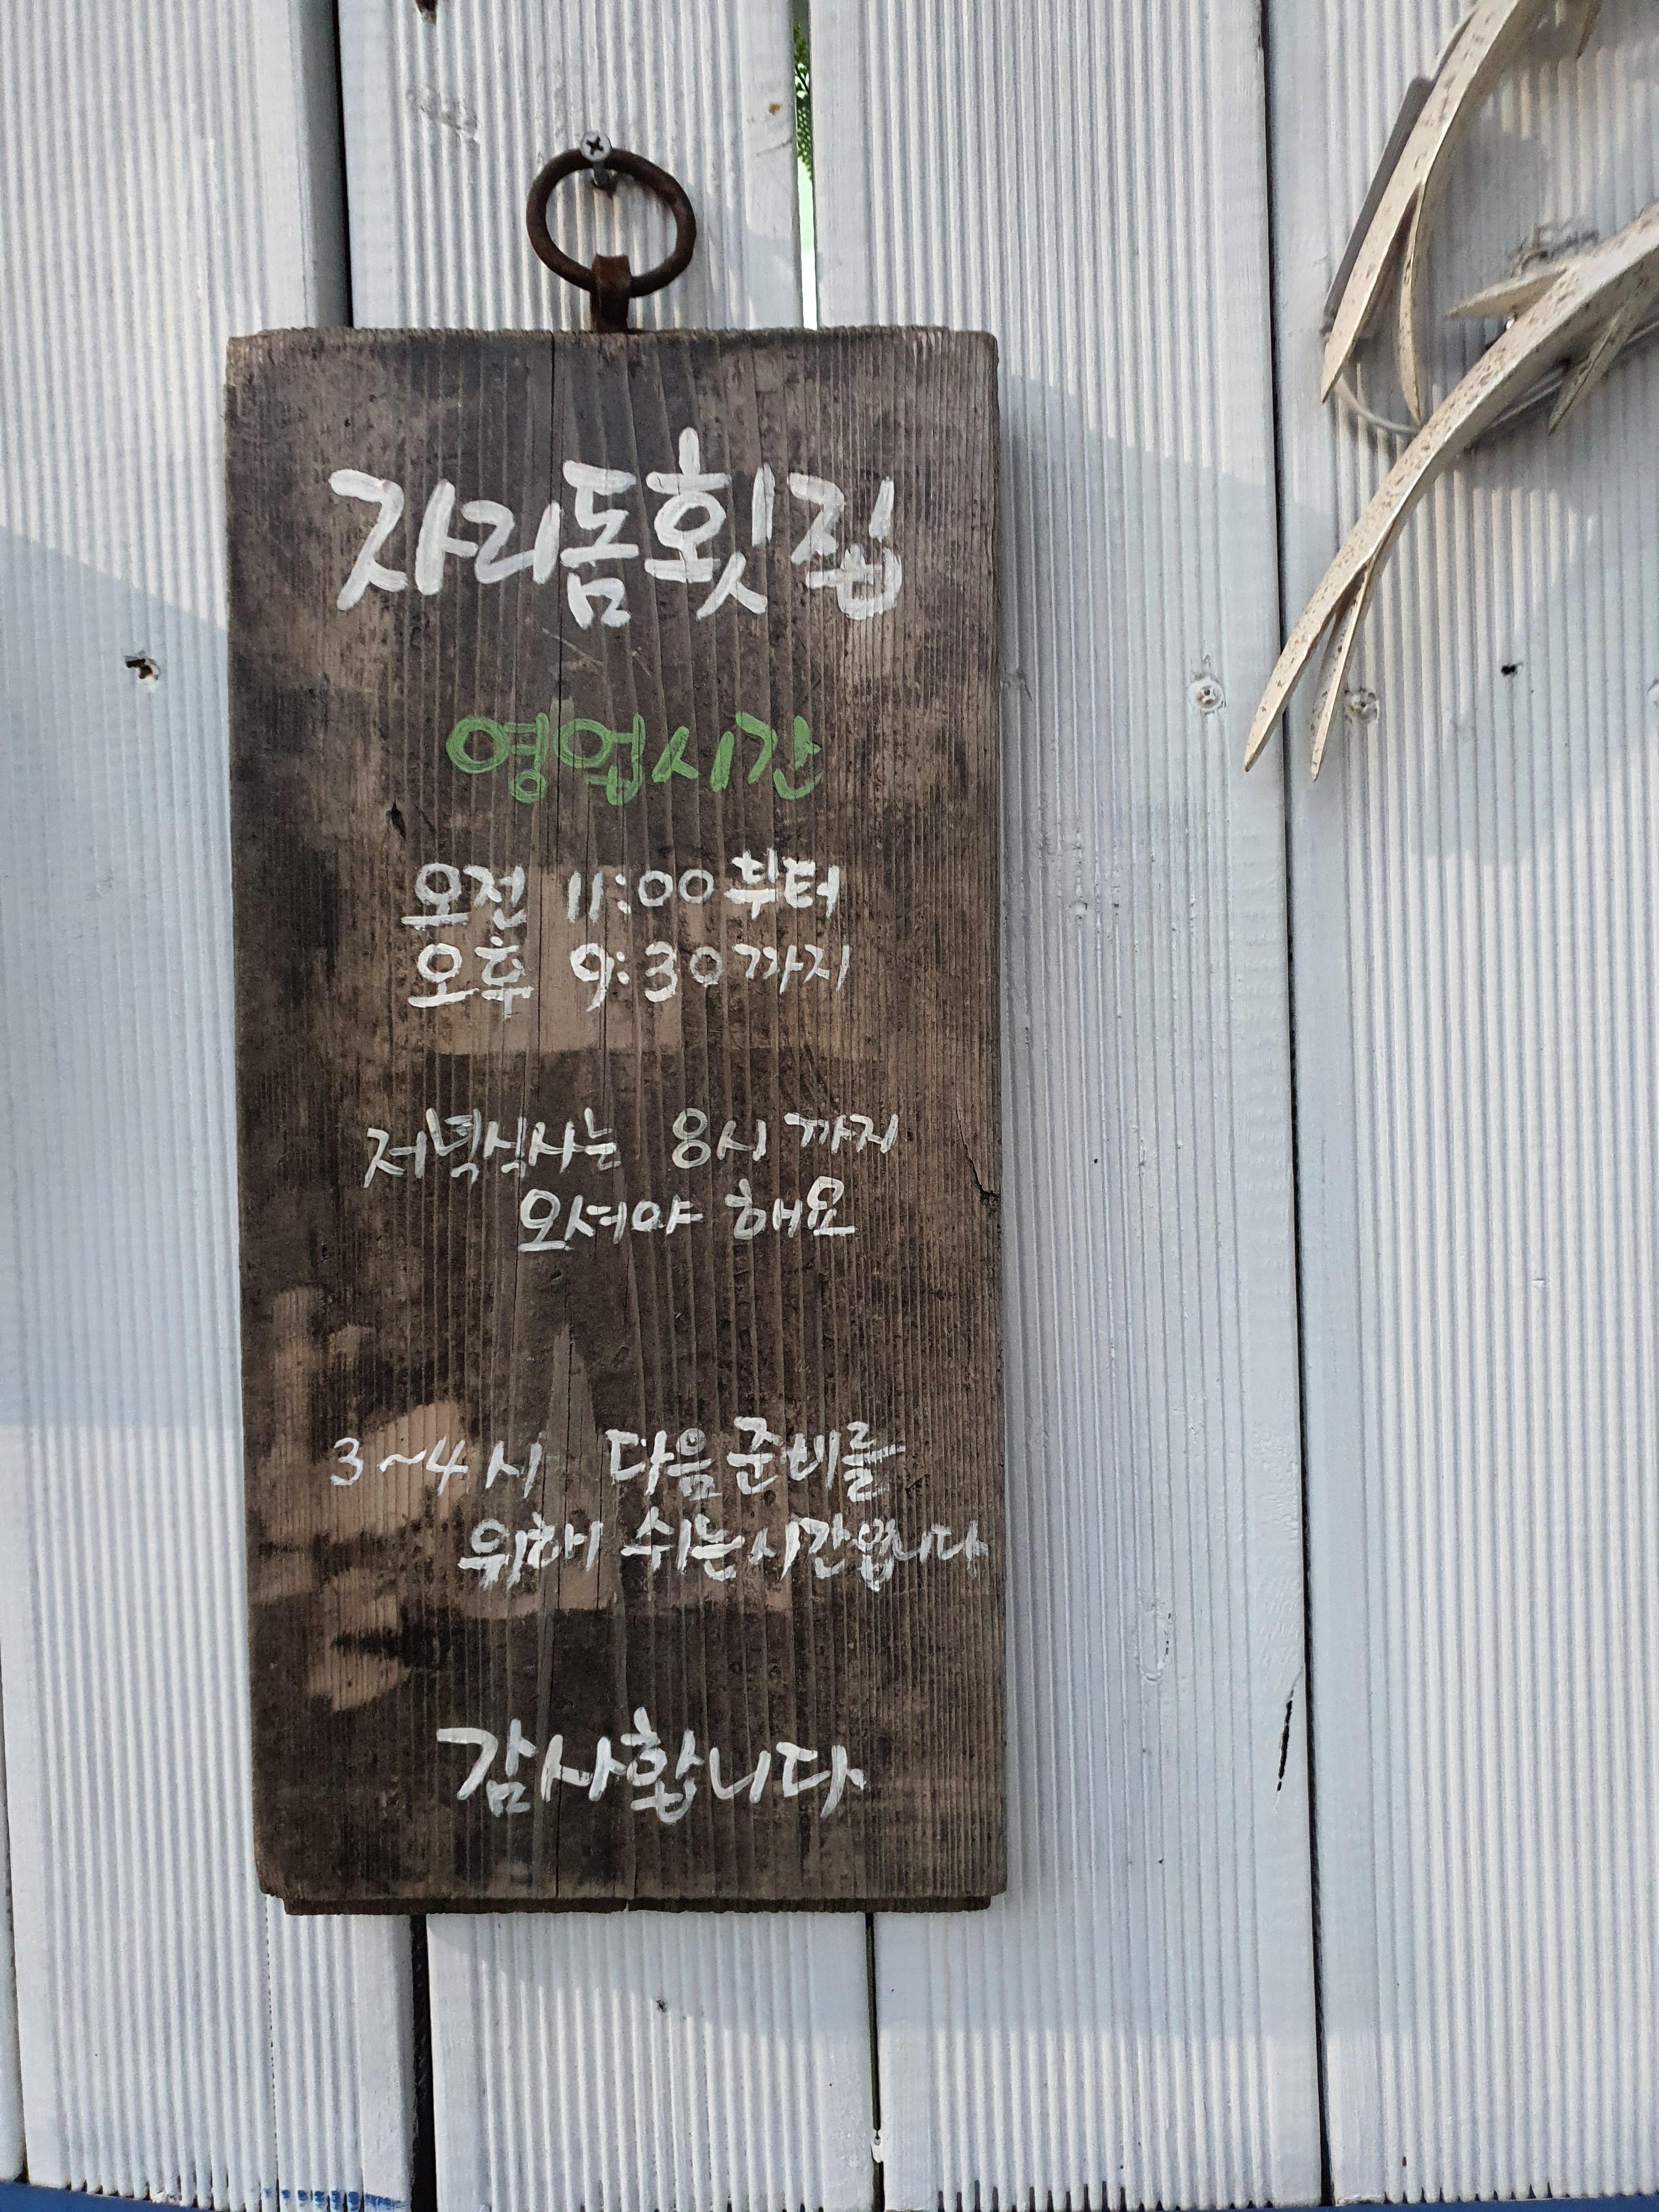 자리돔횟집
영업시간
오전 11:00부터
오후 9:30까지
저녁식사는 8시 까지
오셔야 해요
3~4시 다음준비를
위해 쉬는시간입니다
감사합니다